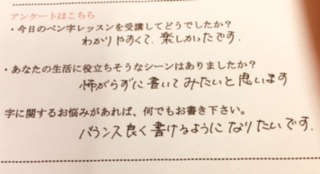 アンケートはこちら
・今日のペン字レッスンを受講してどうでしたか？
わかりやすくて、楽しかったです．
・あなたの生活に役立ちそうなシーンはありましたか？
怖がらずに書いてみたいと思います
字に関するお悩みがあれば、何でもお書き下さい。
バランス良く書けるようになりたいです．